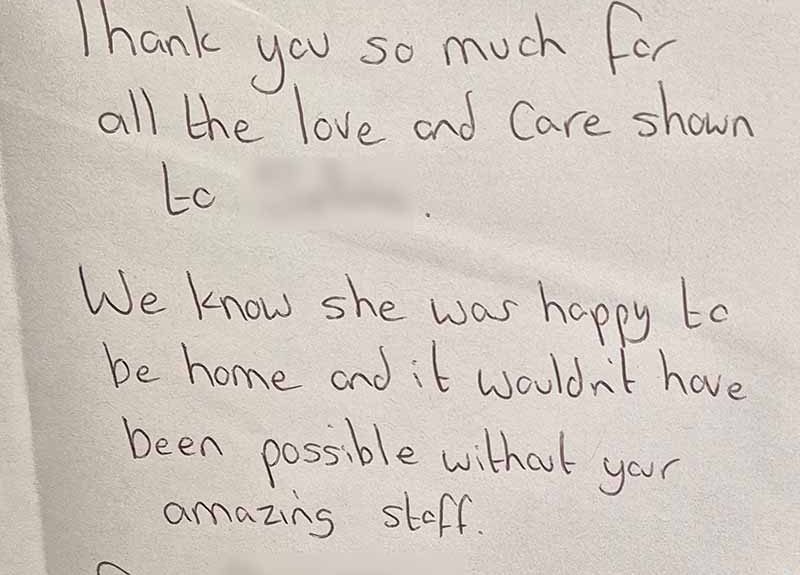 Thank you so much for
all the love and care shown
to .
We know she was happy to
be home and it wouldn't have
been possible without your
amazing staff.